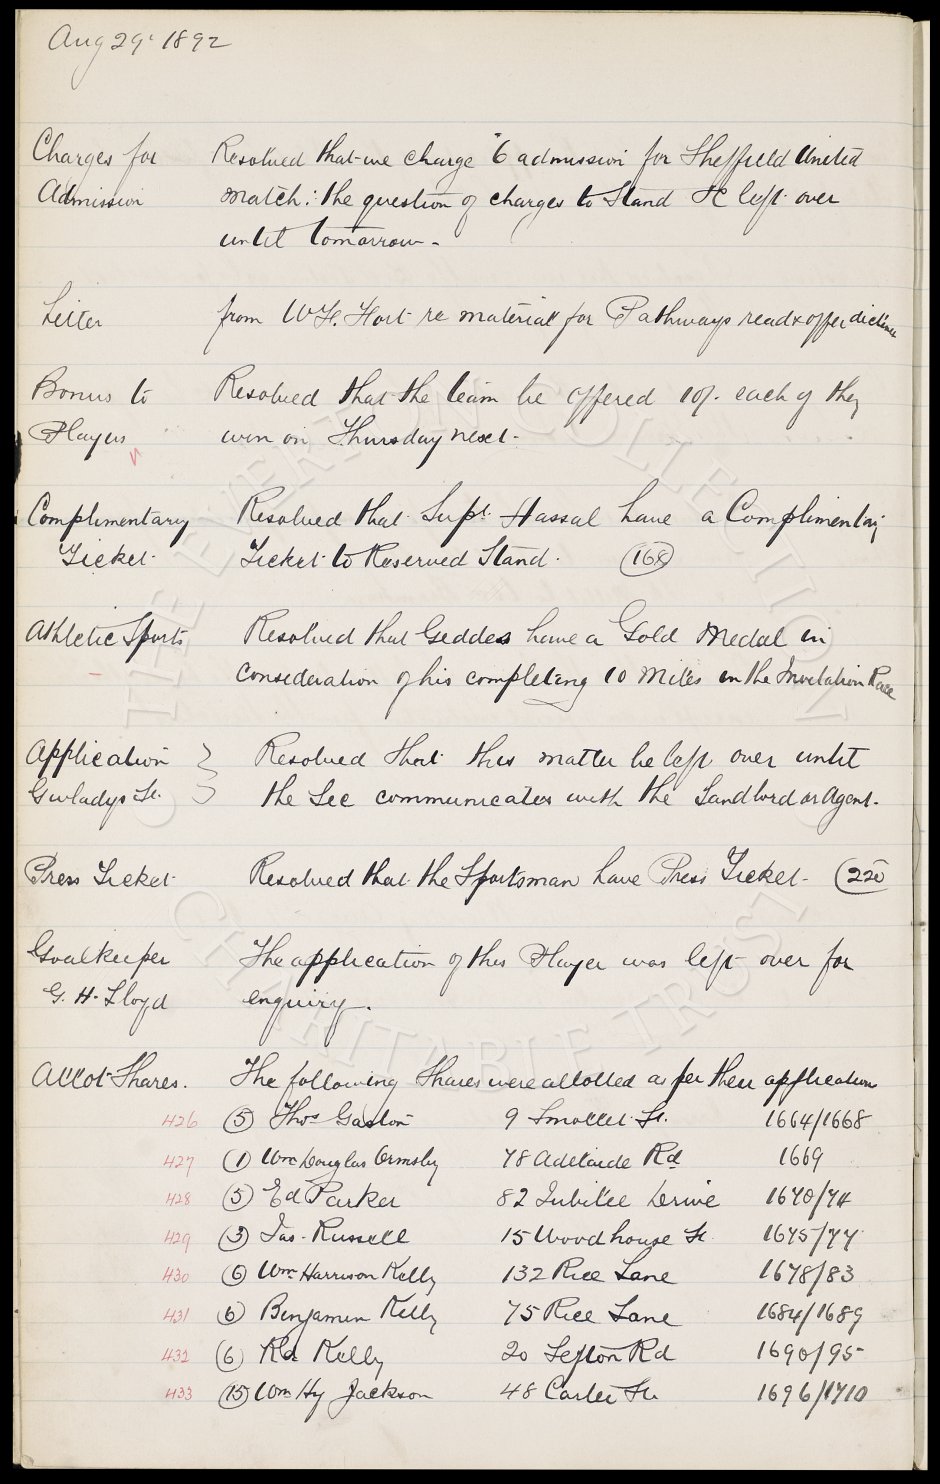 Aug 29. 1892
Charges for Resolved that we charge "6 admission for Sheffield United
Admission match: the question of charges to Stand &c left over
until tomorrow.
Letter from W H. Hort re material for Pathways read & offer declined
Bonus to Resolved that the team be offered 10/- each if they
Players win on Thursday next.
Complimentary Resolved that Supt. Hassal have a Complimentary
Ticket. Ticket to Reserved Stand. (168)
Athletic Sports Resolved that Geddes have a Gold Medal in
consideration of his completing 10 miles in the Invitation Race
Application } Resolved that this matter be left over until
Gwladys St. the Sec communicates with the Landlord or Agent.
Press Ticket Resolved that the Sportsman have Press Ticket. (220
Goalkeeper The application of this Player was left over for
G. H. Lloyd enquiry.
Allot Shares. The following Shares were allotted as per their application
426 (5) Thos Gaston 9 Smollet St. 1664/1668
427 (1) Wm Douglas Ormsby 78 Adelaide Rd 1669
428 (5) Ed Parker 82 Jubilee Drive 1670/74
429 (3) Jas. Russell 15 Woodhouse St. 1675/77
430 (6) Wm Harrison Kelly 132 Rice Lane 1678/83
431 (6) Benjamin Kelly 75 Rice Lane 1684/1689
432 (6) Rd. Kelly 20 Sefton Rd 1690/95
433 (15) Wm Hy Jackson 48 Carter St. 1696/1710
THE EVERTON COLLECTION
CHARITABLE TRUST